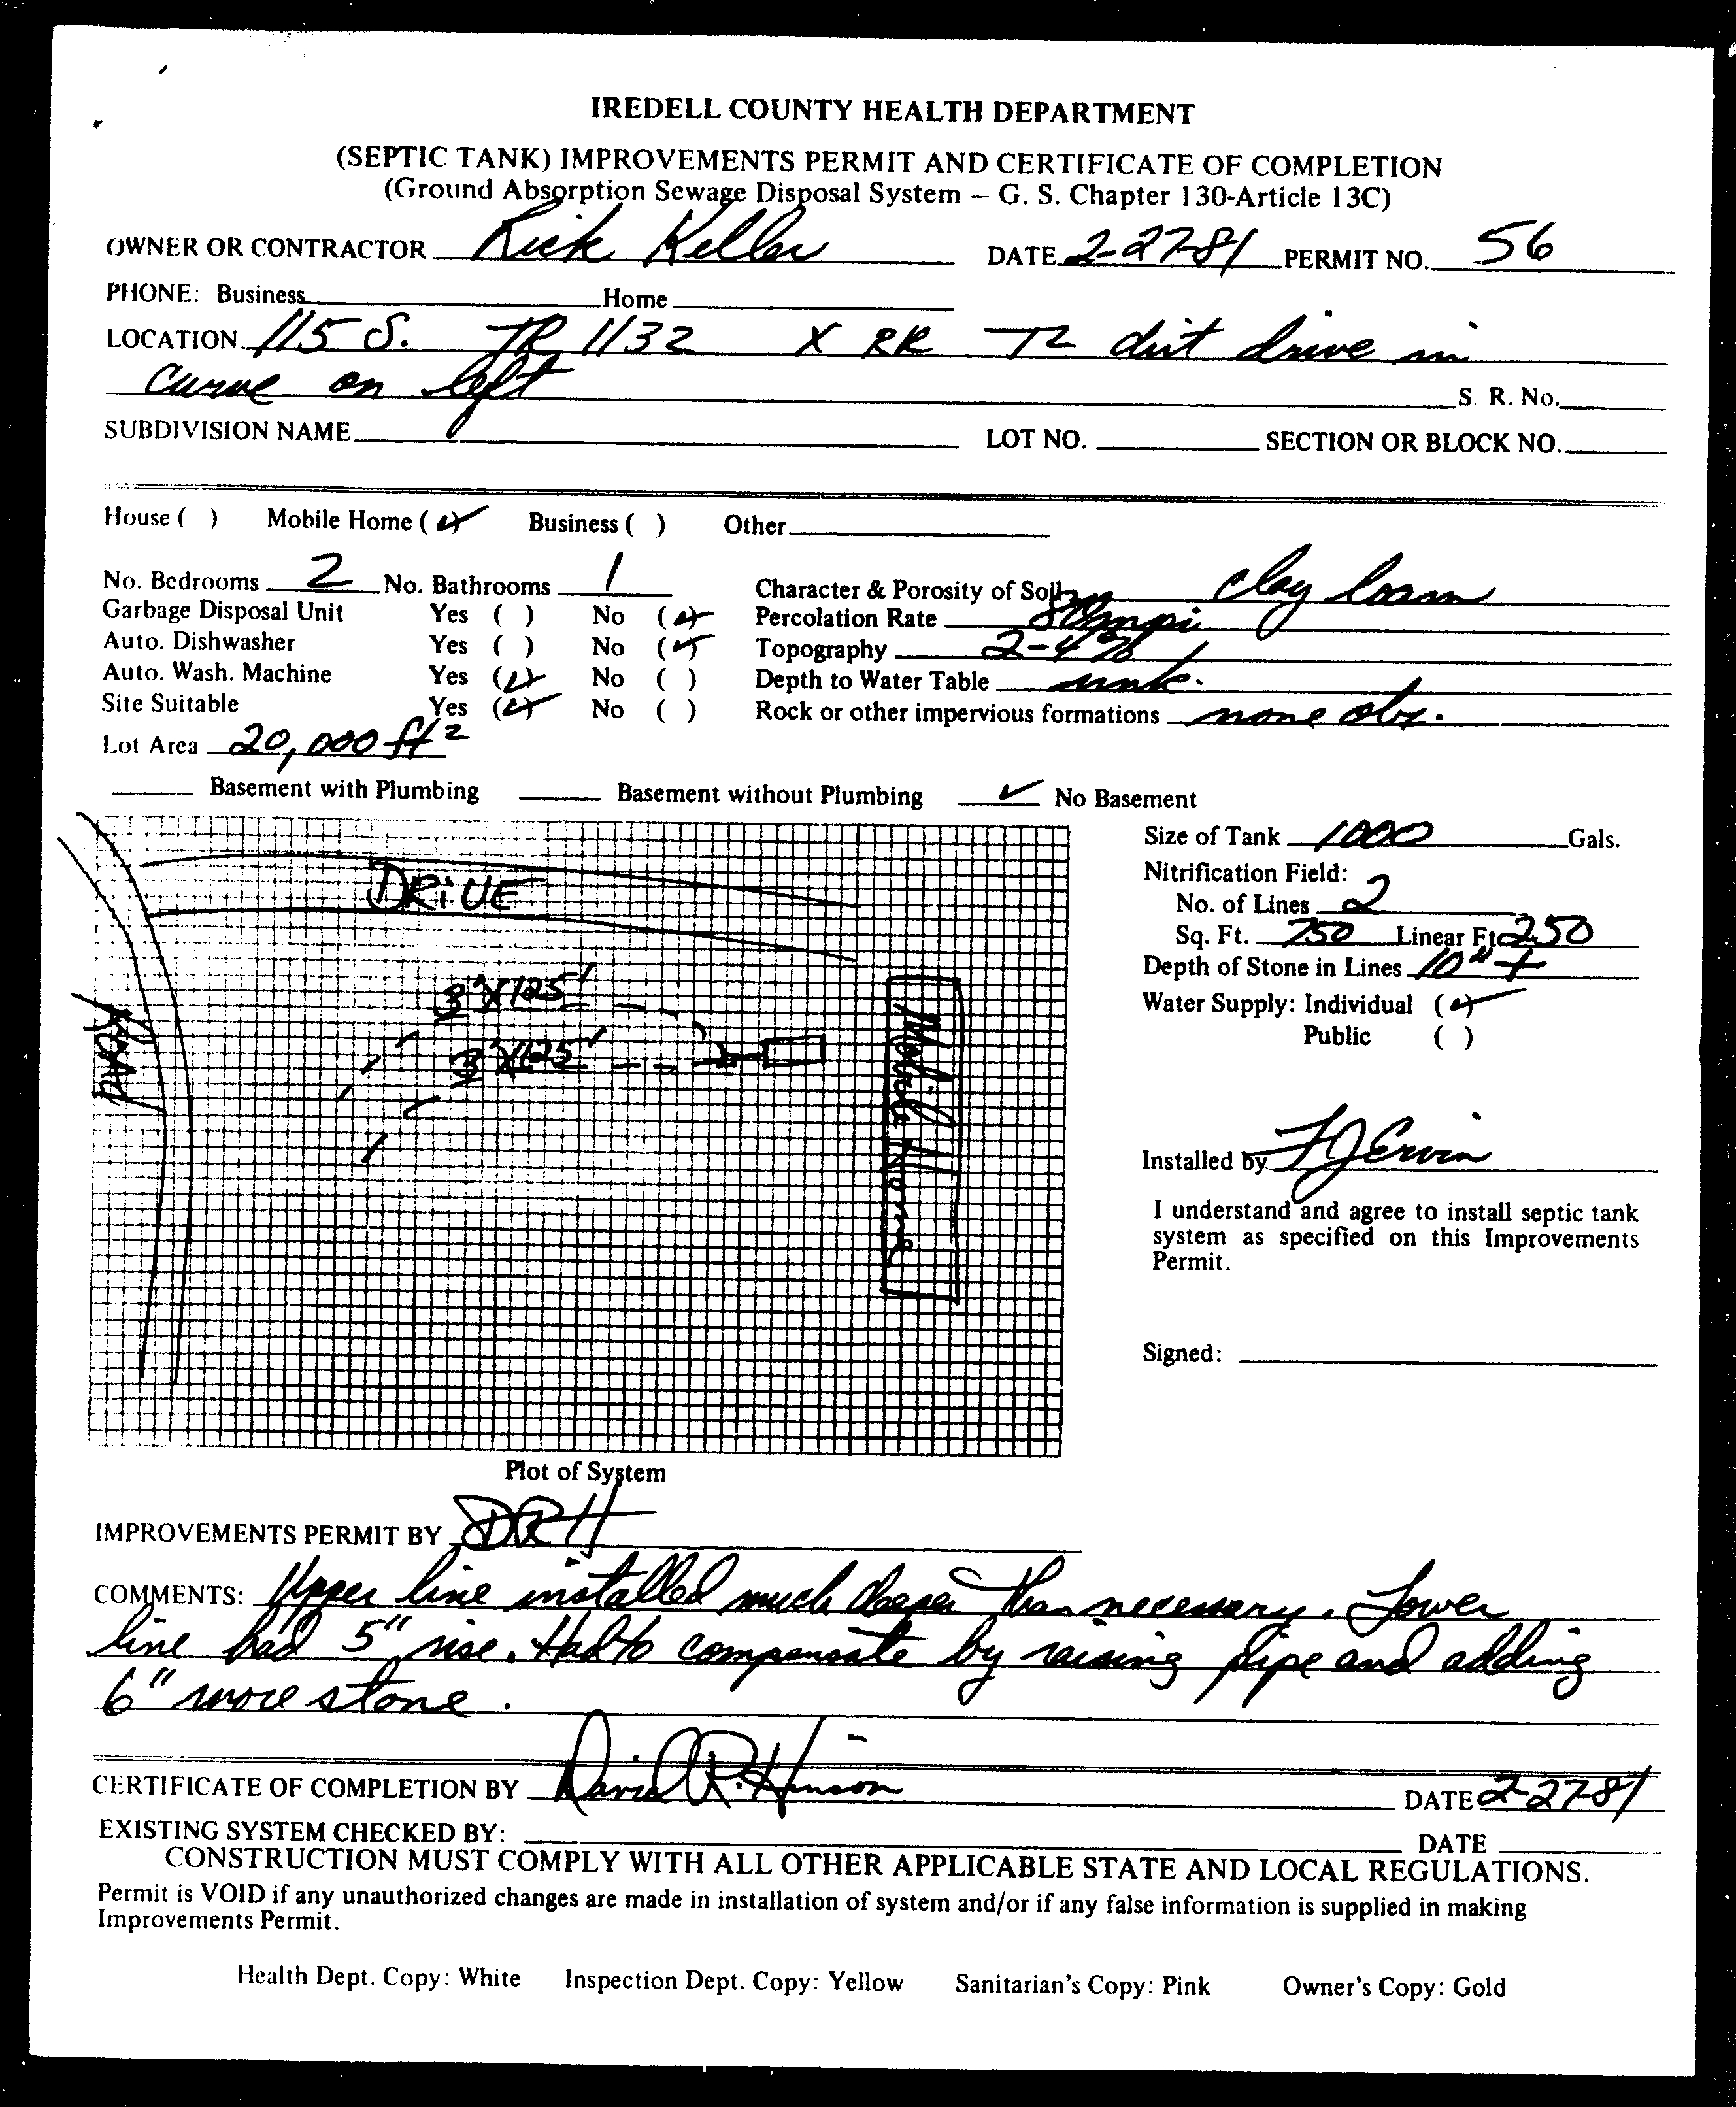 IREDELL COUNTY HEALTH DEPARTMENT
(SEPTIC TANK) IMPROVEMENTS PERMIT AND CERTIFICATE OF COMPLETION
(Ground Absorption Sewage Disposal System – G. S. Chapter 130-Article 13C)
OWNER OR CONTRACTOR Rick Keller DATE 2-27-81 PERMIT NO. 56
PHONE: Business Home
LOCATION 115 S. TR 1132 X RR TL dirt drive in
curve on left S. R. No.
SUBDIVISION NAME LOT NO. SECTION OR BLOCK NO.
House ( ) Mobile Home (✓) Business ( ) Other
No. Bedrooms 2 No. Bathrooms 1 Character & Porosity of Soil clay loam
Garbage Disposal Unit Yes ( ) No (✓) Percolation Rate 80mpi
Auto. Dishwasher Yes ( ) No (✓) Topography 2-4%
Auto. Wash. Machine Yes (✓) No ( ) Depth to Water Table unk.
Site Suitable Yes (✓) No ( ) Rock or other impervious formations none obs.
Lot Area 20,000 ft²
Basement with Plumbing Basement without Plumbing ✓ No Basement
Size of Tank 1000 Gals.
Nitrification Field:
No. of Lines 2
Sq. Ft. 750 Linear Ft 250
Depth of Stone in Lines 10" +
Water Supply: Individual (✓)
Public ( )
DRIVE
3'X125'
3'X125'
Road
Mobile Home
Installed by FJ Ervin
I understand and agree to install septic tank
system as specified on this Improvements
Permit.
Signed:
Plot of System
IMPROVEMENTS PERMIT BY DRH
COMMENTS: Upper line installed much deeper than necessary. Lower
line had 5" rise. Had to compensate by raising pipe and adding
6" more stone.
CERTIFICATE OF COMPLETION BY David R. Hinson DATE 2-27-81
EXISTING SYSTEM CHECKED BY: DATE
CONSTRUCTION MUST COMPLY WITH ALL OTHER APPLICABLE STATE AND LOCAL REGULATIONS.
Permit is VOID if any unauthorized changes are made in installation of system and/or if any false information is supplied in making
Improvements Permit.
Health Dept. Copy: White Inspection Dept. Copy: Yellow Sanitarian's Copy: Pink Owner's Copy: Gold